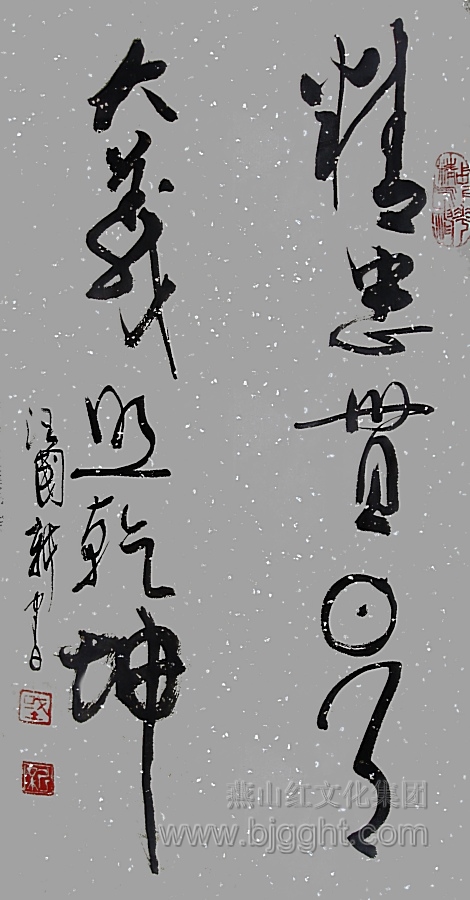 精忠贯日月
大义照乾坤
汪国新书
燕山红文化集团
www.bjgght.com